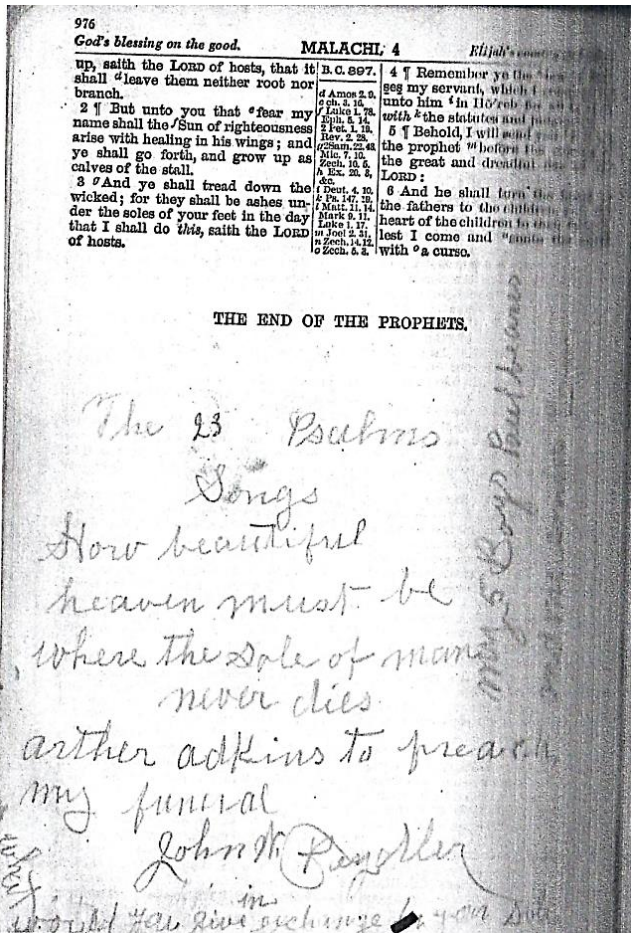 976
God's blessing on the good.
MALACHI, 4
Elijah's
up, saith the LORD of hosts, that it
shall ᵈleave them neither root nor
branch.
2 ¶ But unto you that ᵉfear my
name shall the ᶠSun of righteousness
arise with healing in his wings; and
ye shall go forth, and grow up as
calves of the stall.
3 ᵍAnd ye shall tread down the
wicked; for they shall be ashes un-
der the soles of your feet in the day
that I shall do this, saith the LORD
of hosts.
B.C. 397.
d Amos 2. 9.
e ch. 3. 16.
f Luke 1. 78.
Eph. 5. 14.
2 Pet. 1. 19.
Rev. 2. 28.
g 2Sam. 22. 43.
Mic. 7. 10.
Zech. 10. 5.
h Ex. 20. 3,
&c.
i Deut. 4. 10.
k Ps. 147. 19.
l Matt. 11. 14.
Mark 9. 11.
Luke 1. 17.
m Joel 2. 31.
n Zech. 14. 12.
o Zech. 5. 3.
4 ¶ Remember ye the
ses my servant, which I
unto him ⁱin Hō'reb for
with ᵏthe statutes and
5 ¶ Behold, I will send
the prophet ᵐbefore the
the great and dreadful
LORD:
6 And he shall turn the
the fathers to the children
heart of the children to their
lest I come and ⁿsmite the
with ᵒa curse.
THE END OF THE PROPHETS.
The 23 Psalms
Songs
How beautiful
heaven must be
where the Sole of man
never dies
arther adkins to preach
my funeral
John W
what
in
would you give exchange for your Sole
my 5 Boys Paulbearers